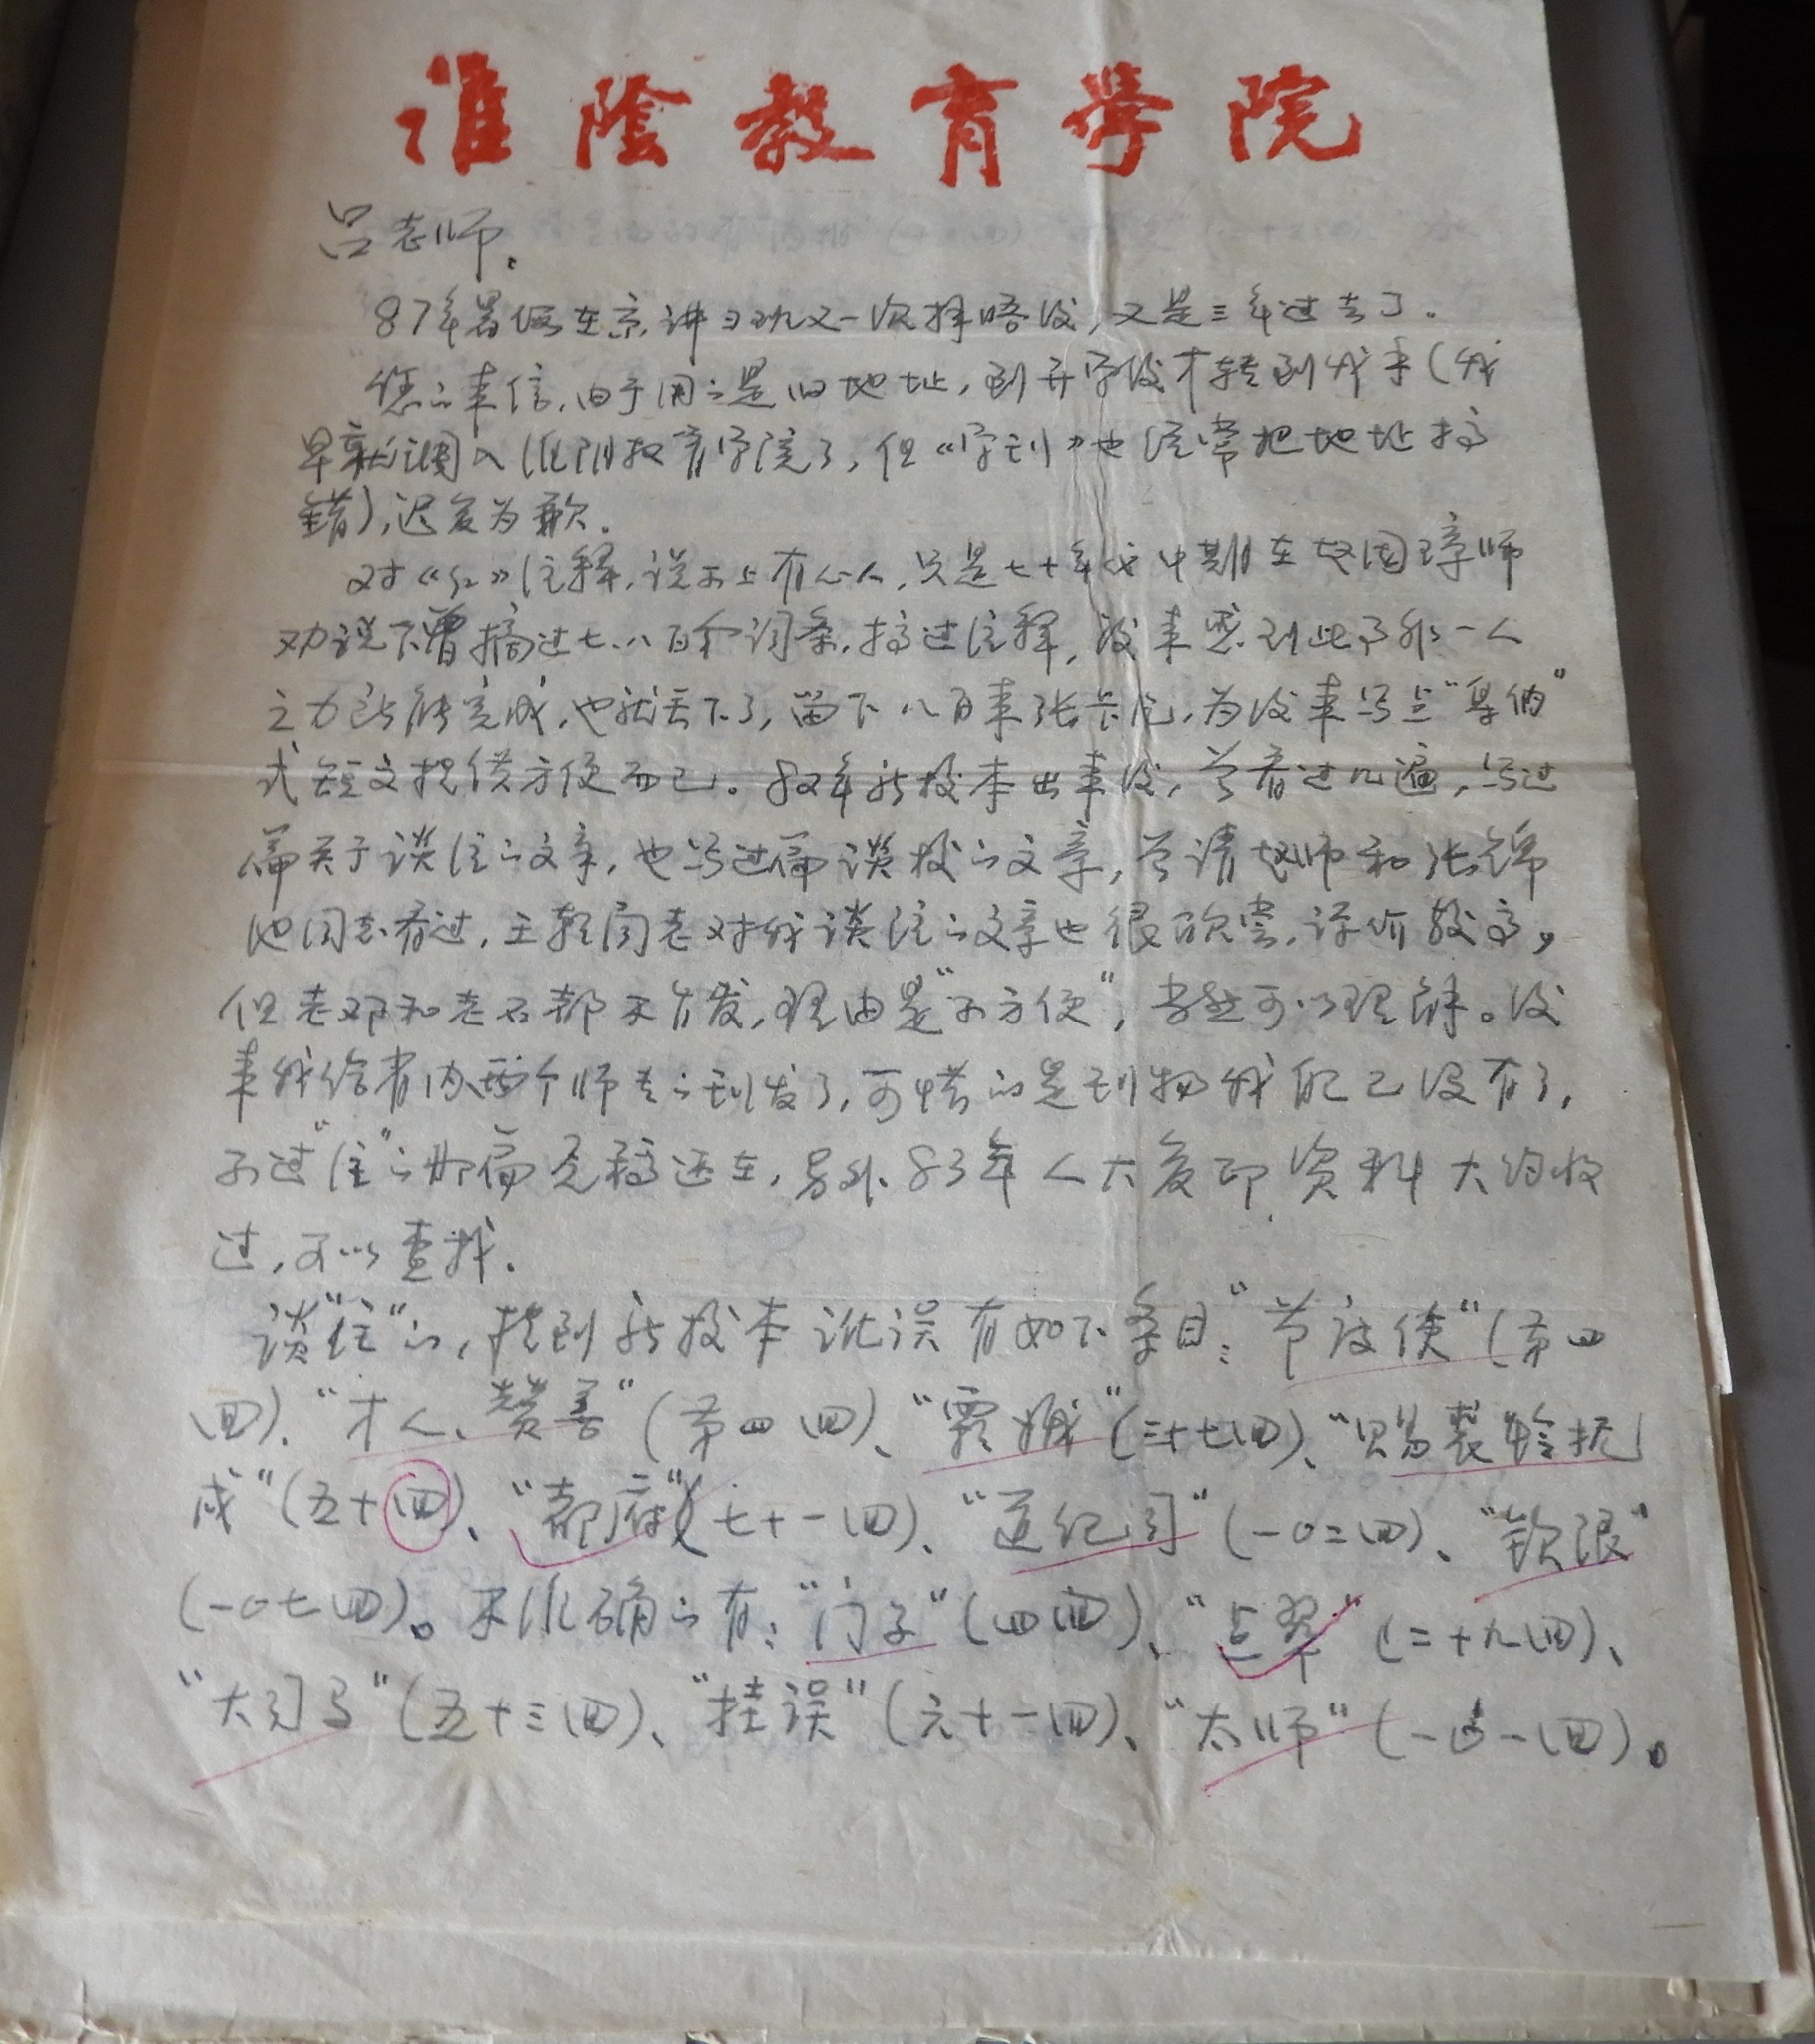 淮陰教育学院
吕老师:
87年暑假在京讲习班又一次择晤后,又是三年过去了。
您的来信,由于用的是旧地址,到开学后才转到我手(我
早就调入淮阴教育学院了,但《学刊》也经常把地址搞
错),迟复为歉。
对《红》注释,说不上有心人,只是七十年代中期在赵国璋师
劝说下曾摘过七、八百个词条,搞过注释,后来感到此事非一人
之力所能完成,也就丢下了,留下八百来张卡片,为后来写点“集衲”
式短文提供方便而已。82年新校本出来后,曾看过几遍,写过
篇关于谈注的文章,也写过篇谈校的文章,曾请赵师和张锦
池同志看过,王朝闻老对我谈注的文章也很欣赏,评价较高,
但老邓和老石都未肯发,理由是“不方便”,当然可以理解。后
来我给省内两个师专的刊发了,可惜的是刊物我自己没有了,
不过“注”的那篇底稿还在,另外83年人大复印资料大约收
过,可以查找。
谈“注”的,提到新校本讹误有如下条目:“节度使”(第四
回)、“才人、赞善”(第四回)、“霜娥”(三十七回)、“赐裘怜抚
戍”(五十回)、“都府”(七十一回)、“道纪司”(一〇二回)、“钦限”
(一〇七回)。不准确的有:“门子”(四回)、“点翠”(二十九回)、
“大司马”(五十三回)、“挂误”(六十一回)、“太师”(一〇一回)。